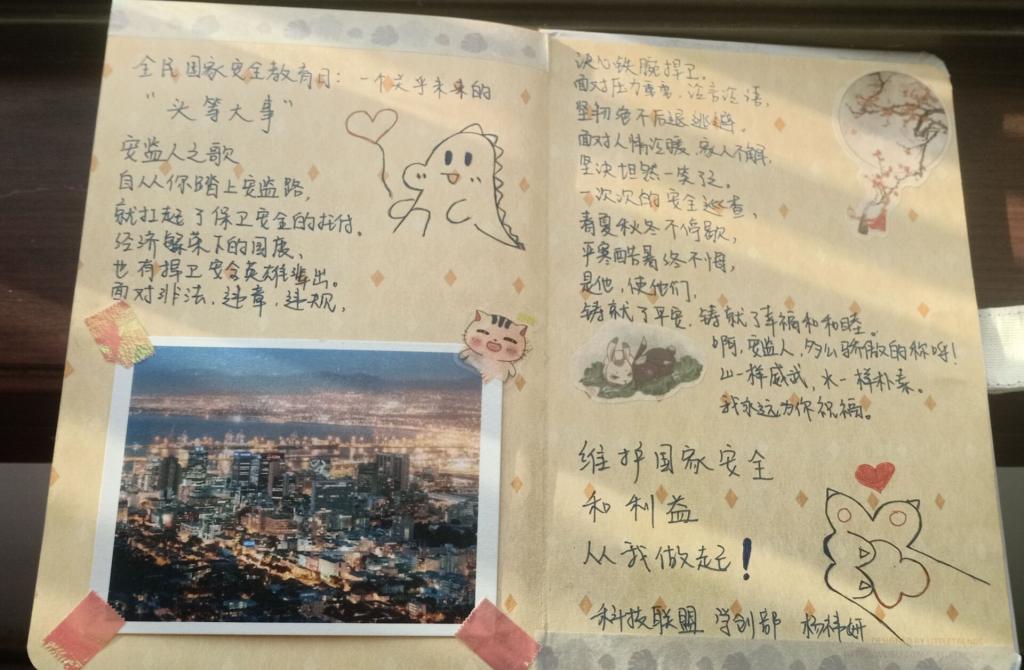 全民国家安全教育日：一个关乎未来的
“头等大事”
安监人之歌
自从你踏上安监路，
就扛起了保卫安全的托付。
经济繁荣下的国度、
也有捍卫安全英雄辈出。
面对非法、违章、违规，
决心铁腕捍卫。
面对压力重重，冷言冷语，
坚韧客不后退逃避。
面对人情冷暖、家人不解，
坚决坦然一笑了之。
一次次的安全巡查，
春夏秋冬不停歇，
严寒酷暑终不悔，
是他，使他们，
铸就了平安，铸就了幸福和和睦。
啊，安监人，多么骄傲的称呼！
山一样威武，水一样朴素。
我永远为你祝福。
维护国家安全
和利益
从我做起！
科技联盟 学创部 杨祎妍
DESIGNED BY LITTLETHENGS